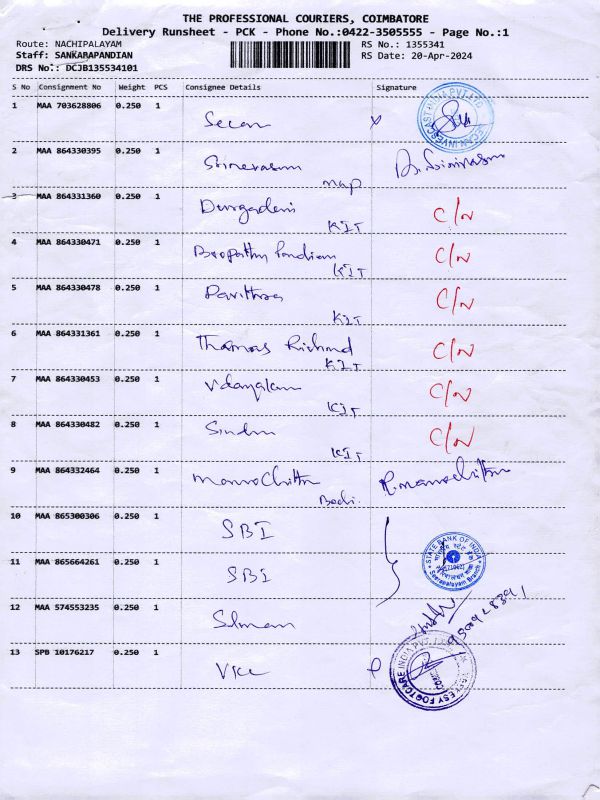 THE PROFESSIONAL COURIERS, COIMBATORE
Delivery Runsheet - PCK - Phone No.:0422-3505555 - Page No.:1
Route: NACHIPALAYAM RS No.: 1355341
Staff: SANKARAPANDIAN RS Date: 20-Apr-2024
DRS No.: DCJB135534101
S No Consignment No Weight PCS Consignee Details Signature
1 MAA 703628806 0.250 1
2 MAA 864330395 0.250 1 Srinevasan
map
3 MAA 864331360 0.250 1 Durgadevi C/N
KIT
4 MAA 864330471 0.250 1 Boopathy Pandian C/N
KIT
5 MAA 864330478 0.250 1 Pavithra C/N
KIT
6 MAA 864331361 0.250 1 Thamas Richmd C/N
KIT
7 MAA 864330453 0.250 1 Udayalam C/N
KIT
8 MAA 864330482 0.250 1 Sindhu C/N
KIT
9 MAA 864332464 0.250 1 ManoChithra R.manochithra
10 MAA 865300306 0.250 1 SBI
STATE BANK OF INDIA
11 MAA 865664261 0.250 1 SBI
Seerapalayam Branch
12 MAA 574553235 0.250 1 Salman
13 SPB 10176217 0.250 1